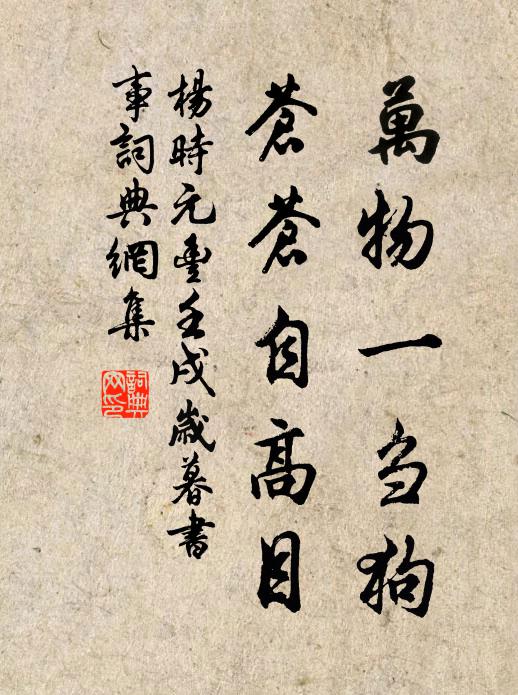 萬物一刍狗
蒼蒼自高目
楊時元豐壬戌歲暮書
事詞典網集
詞典网印